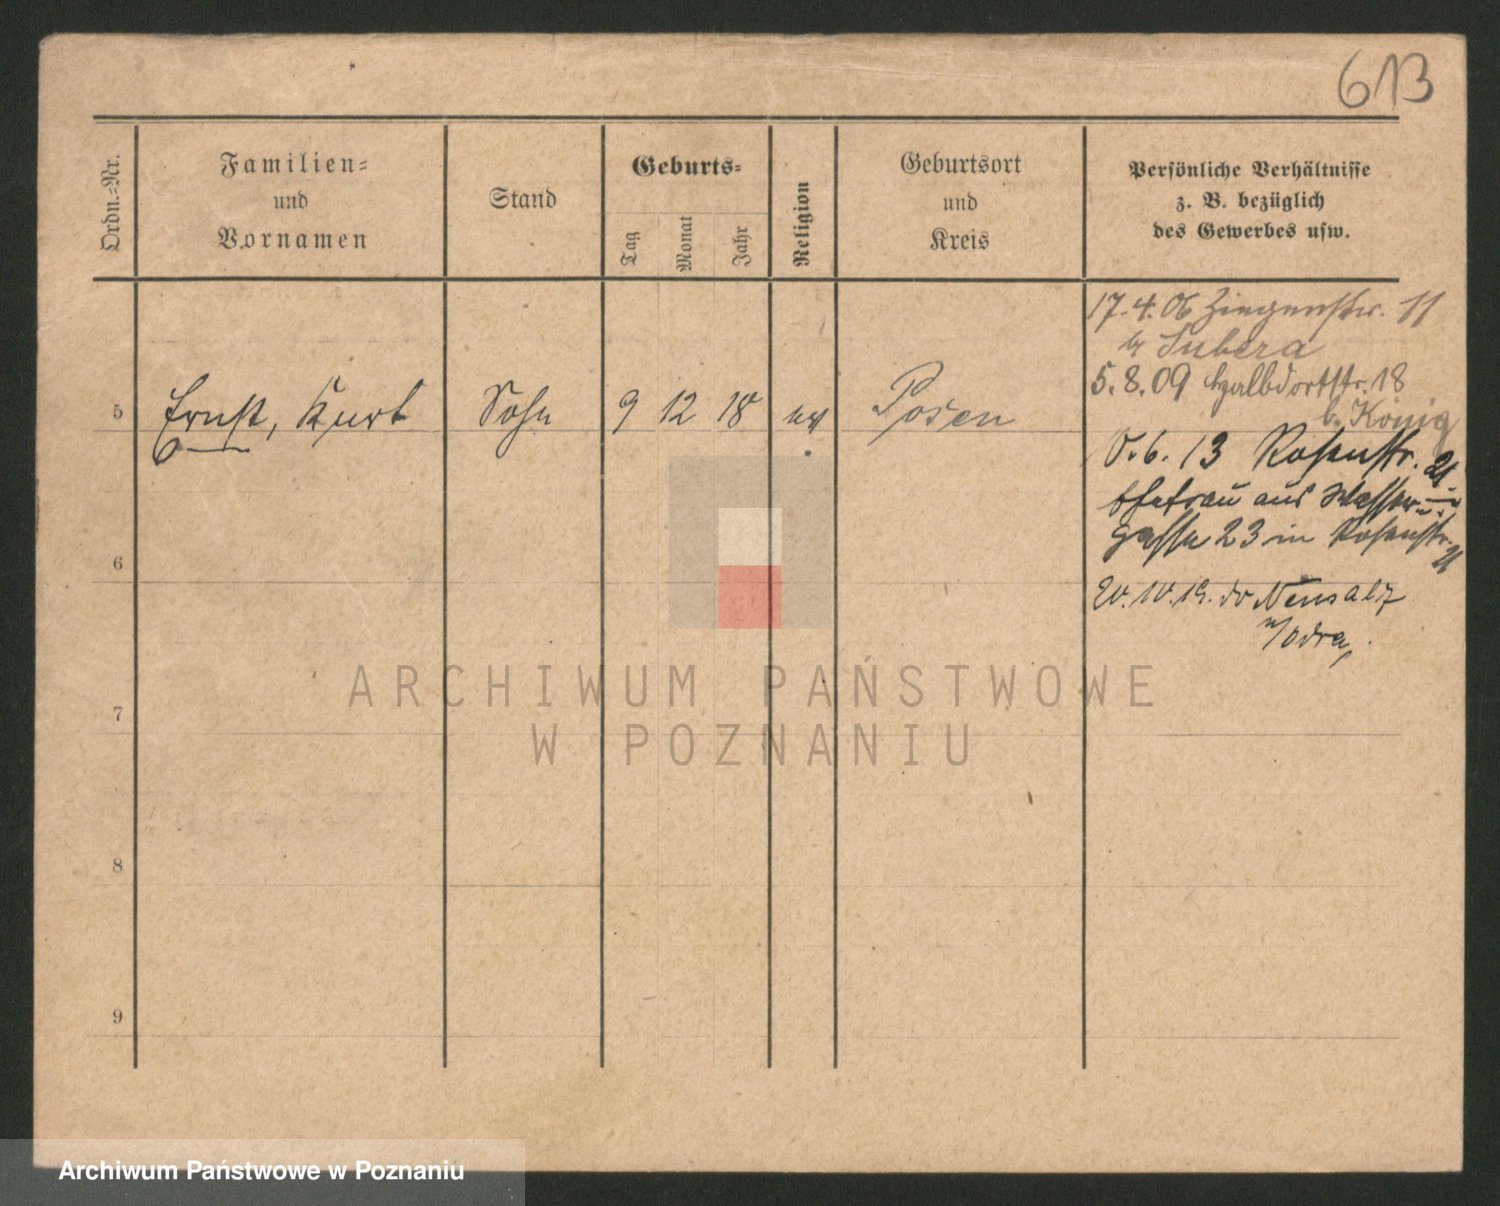 613
Ordn.=Nr.
Familien=
und
Vornamen
Stand
Geburts=
Tag
Monat
Jahr
Religion
Geburtsort
und
Kreis
Persönliche Verhältnisse
z. B. bezüglich
des Gewerbes usw.
17.4.06 Ziegenstr. 11
b Subera
5.8.09 Halbdorfstr. 18
b. König
5 Ernst, Kurt Sohn 9 12 18 ev Posen
6. 13 Rosenstr. 21
Ehefrau aus Wasser-
gasse 23 in Rosenstr. 21
6
20.10.19. Neusalz
a/Odra
7
8
9
ARCHIWUM PAŃSTWOWE
W POZNANIU
Archiwum Państwowe w Poznaniu